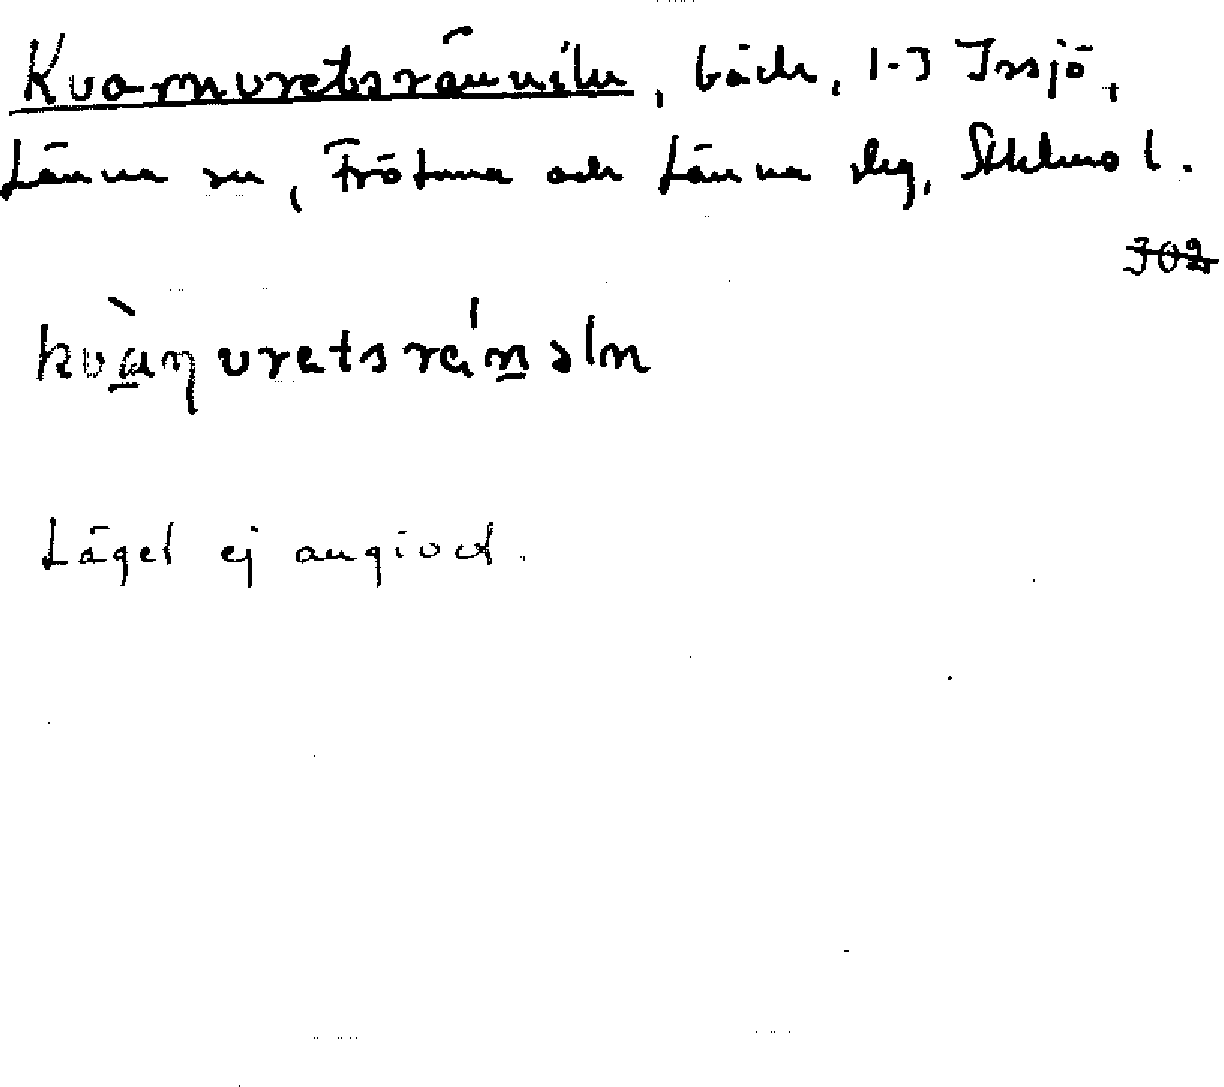 Kvarnvretsränniln, bäck, 1-3 Irsjö,
Länna sn, Frötuna och Länna slg, Sthlms l.
302
kvàṇvretsrén̲əln
Läget ej angivet.